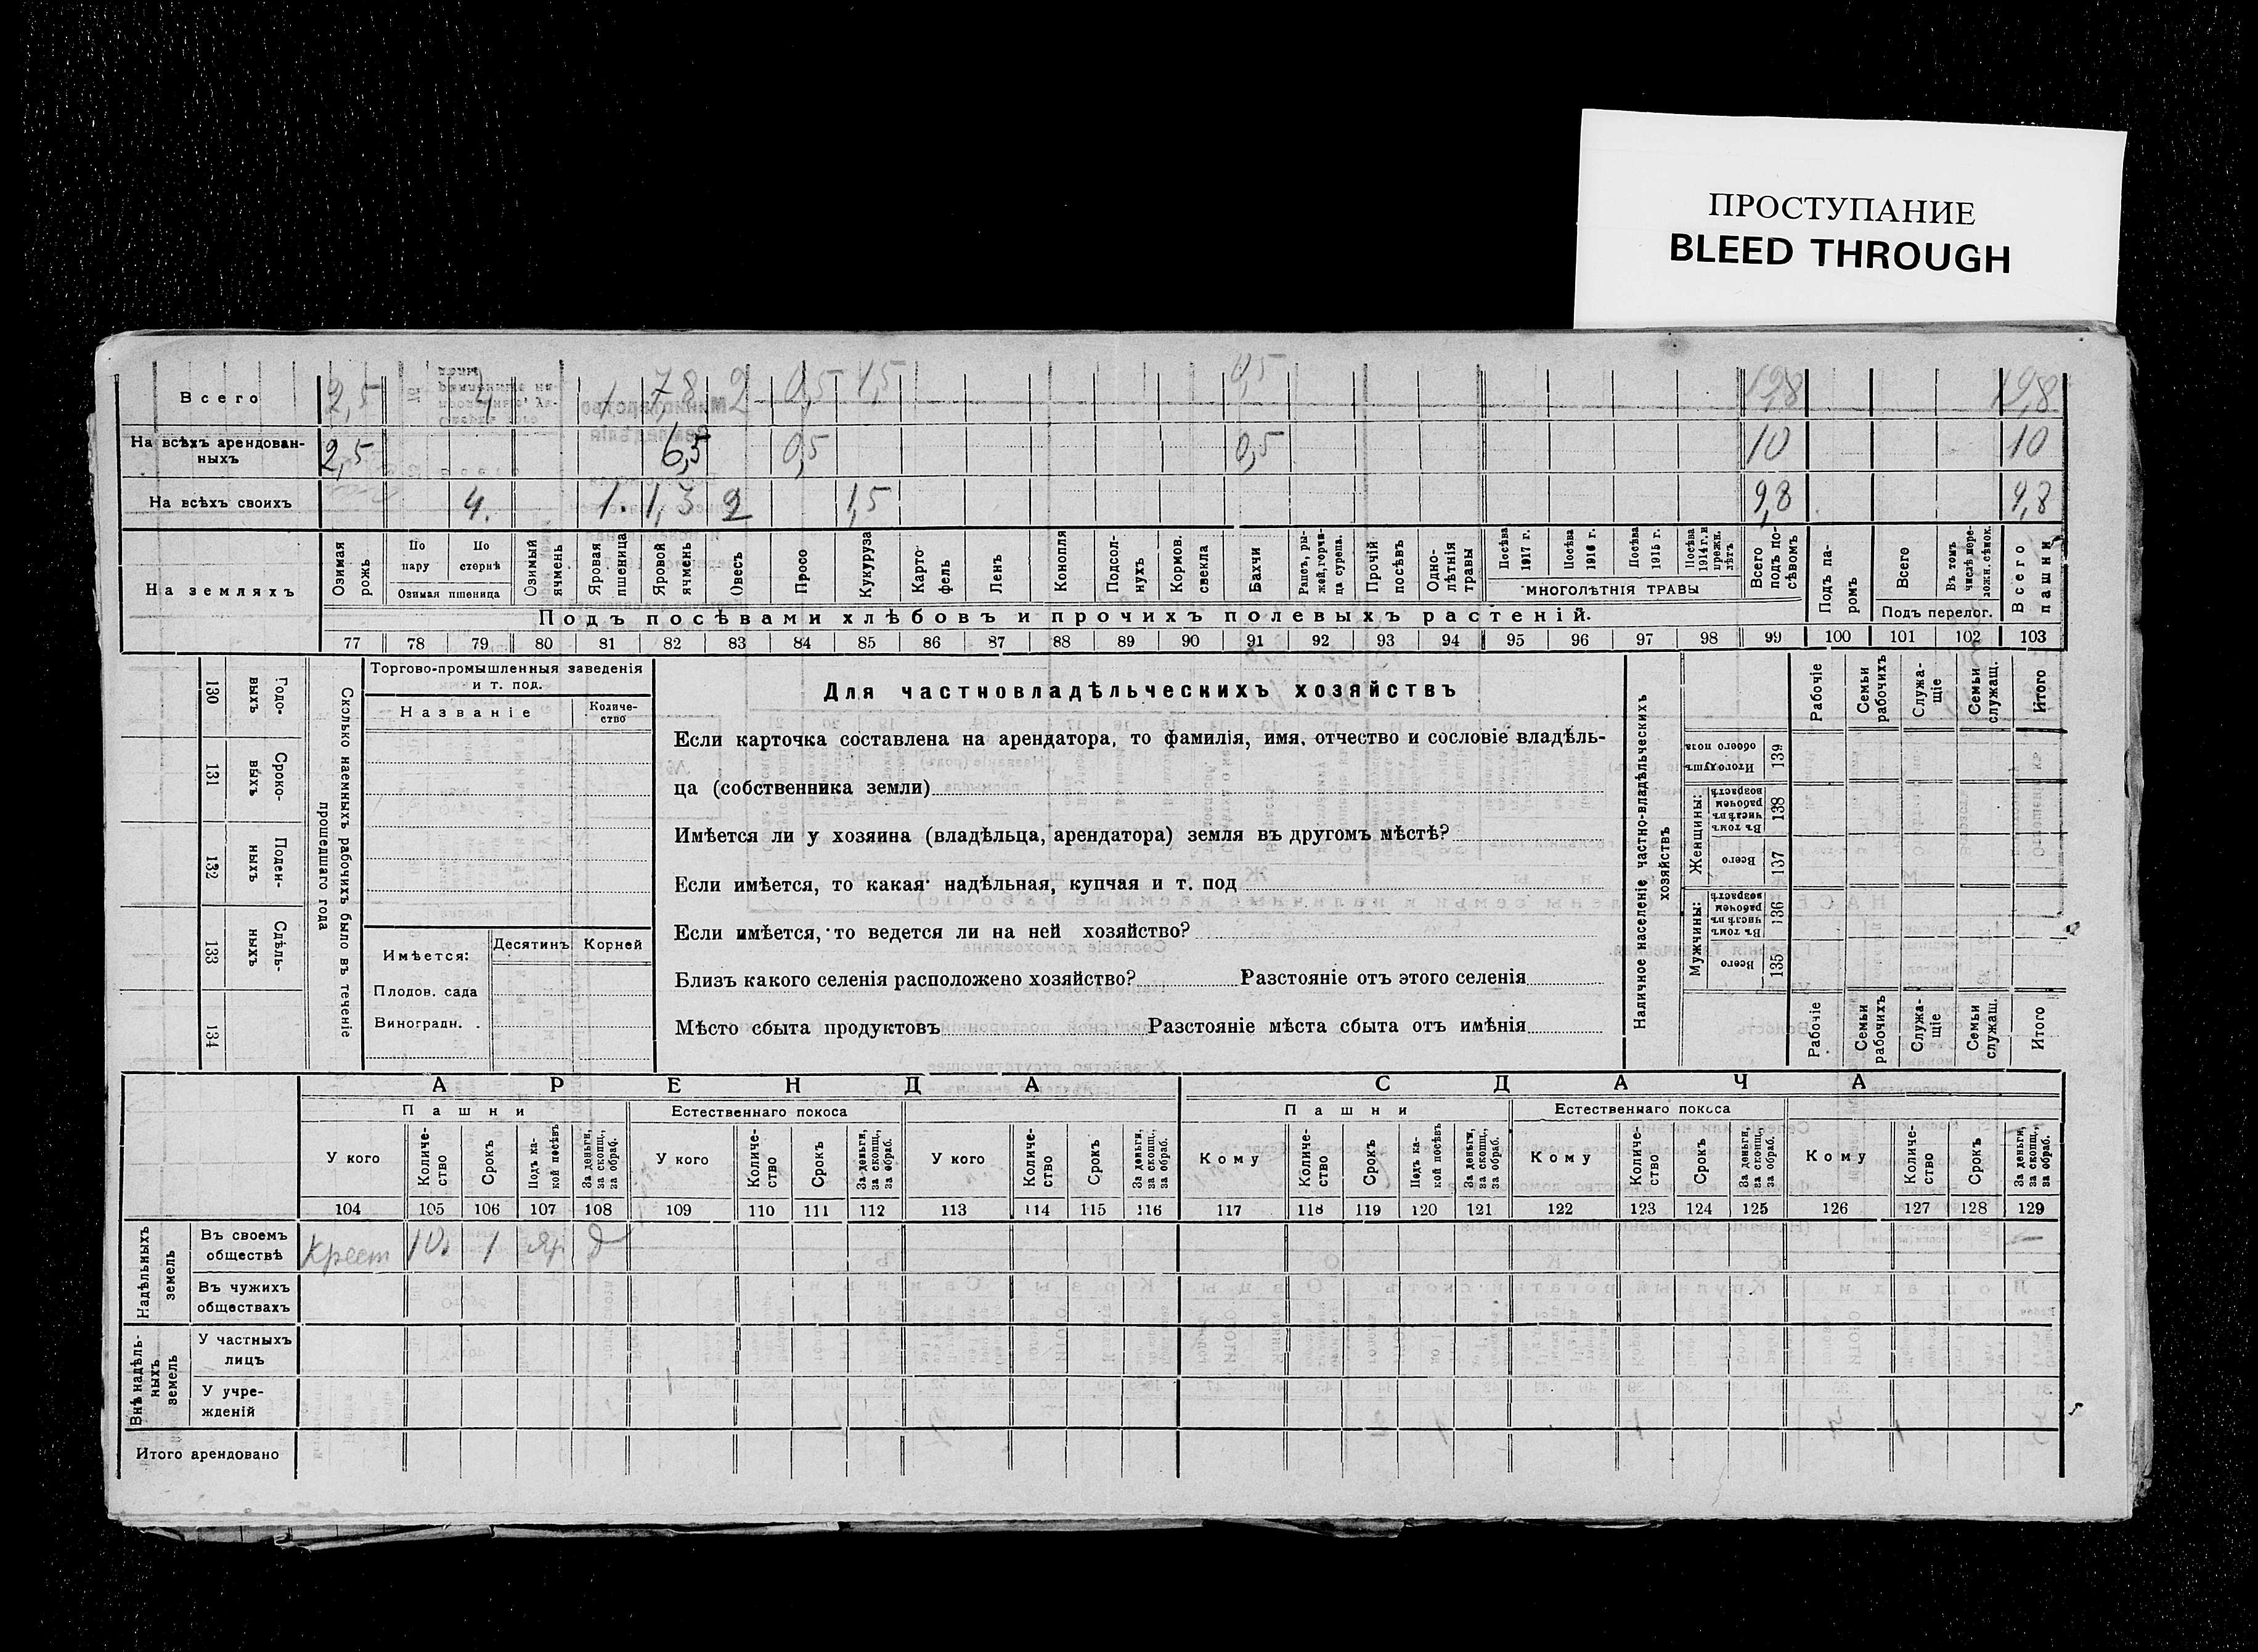 ПРОСТУПАНИЕ
BLEED THROUGH
Всего 2,5 4 1 7,8 2 0,5 1,5 0,5 19,8 19,8
На всѣхъ арендован-
ныхъ 2,5 6,5 0,5 0,5 10 10
На всѣхъ своихъ 4. 1. 1,3 2 1,5 9,8 9,8
На земляхъ
Озимая рожь
По пару
По стернѣ
Озимая пшеница
Озимый ячмень
Яровая пшеница
Яровой ячмень
Овесъ
Просо
Кукуруза
Карто-
фель
Ленъ
Конопля
Подсол-
нухъ
Кормов. свекла
Бахчи
Рапсъ, ры-
жей, горчи-
ца сурепа.
Прочій посѣвъ
Одно-
лѣтнія травы
Посѣва 1917 г.
Посѣва 1916 г.
Посѣва 1915 г.
Посѣва 1914 г. и прежн. лѣтъ
МНОГОЛѢТНІЯ ТРАВЫ
Всего подъ по-
сѣвомъ
Подъ па-
ромъ
Всего
Въ томъ числѣ пере-
ложн. сѣнок.
Подъ перелог.
Всего пашни
Подъ посѣвами хлѣбовъ и прочихъ полевыхъ растеній.
77 78 79 80 81 82 83 84 85 86 87 88 89 90 91 92 93 94 95 96 97 98 99 100 101 102 103
130 Годо-
выхъ
131 Сроко-
выхъ
132 Поден-
ныхъ
133 Сдѣль-
ныхъ
134
Сколько наемныхъ рабочихъ было въ теченіе
прошедшаго года
Торгово-промышленныя заведенія
и т. под.
Названіе
Количе-
ство
Имѣется:
Десятинъ
Корней
Плодов. сада
Виноградн. .
Для частновладѣльческихъ хозяйствъ
Если карточка составлена на арендатора, то фамилія, имя, отчество и сословіе владѣль-
ца (собственника земли)
Имѣется ли у хозяина (владѣльца, арендатора) земля въ другомъ мѣстѣ?
Если имѣется, то какая надѣльная, купчая и т. под
Если имѣется, то ведется ли на ней хозяйство?
Близъ какого селенія расположено хозяйство? Разстояніе отъ этого селенія
Мѣсто сбыта продуктовъ Разстояніе мѣста сбыта отъ имѣнія
Наличное населеніе частно-владѣльческихъ
хозяйствъ
Рабочіе
Семьи рабочихъ
Служа-
щіе
Семьи служащ.
Итого
Итого душъ обоего пола 139
Женщины:
Въ томъ числѣ въ рабочем возрастѣ 138
Всего 137
Мужчины:
Въ томъ числѣ въ рабочем возрастѣ 136
Всего 135
Рабочіе
Семьи рабочихъ
Служа-
щіе
Семьи служащ.
Итого
АРЕНДА
СДАЧА
Пашни
Естественнаго покоса
Пашни
Естественнаго покоса
У кого
Количе-
ство
Срокъ
Подъ ка-
кой посѣвъ
За деньги, за скопщ., за обраб.
У кого
Количе-
ство
Срокъ
За деньги, за скопщ., за обраб.
У кого
Количе-
ство
Срокъ
За деньги, за скопщ., за обраб.
Кому
Количе-
ство
Срокъ
Подъ ка-
кой посѣвъ
За деньги, за скопщ., за обраб.
Кому
Количе-
ство
Срокъ
За деньги, за скопщ., за обраб.
Кому
Количе-
ство
Срокъ
За деньги, за скопщ., за обраб.
104 105 106 107 108 109 110 111 112 113 114 115 116 117 118 119 120 121 122 123 124 125 126 127 128 129
Надѣльныхъ
земель
Въ своемъ
обществѣ Крест 10 1 яр д
Въ чужихъ
обществахъ
Внѣ надѣль-
ныхъ
земель
У частныхъ
лицъ
У учре-
жденій
Итого арендовано